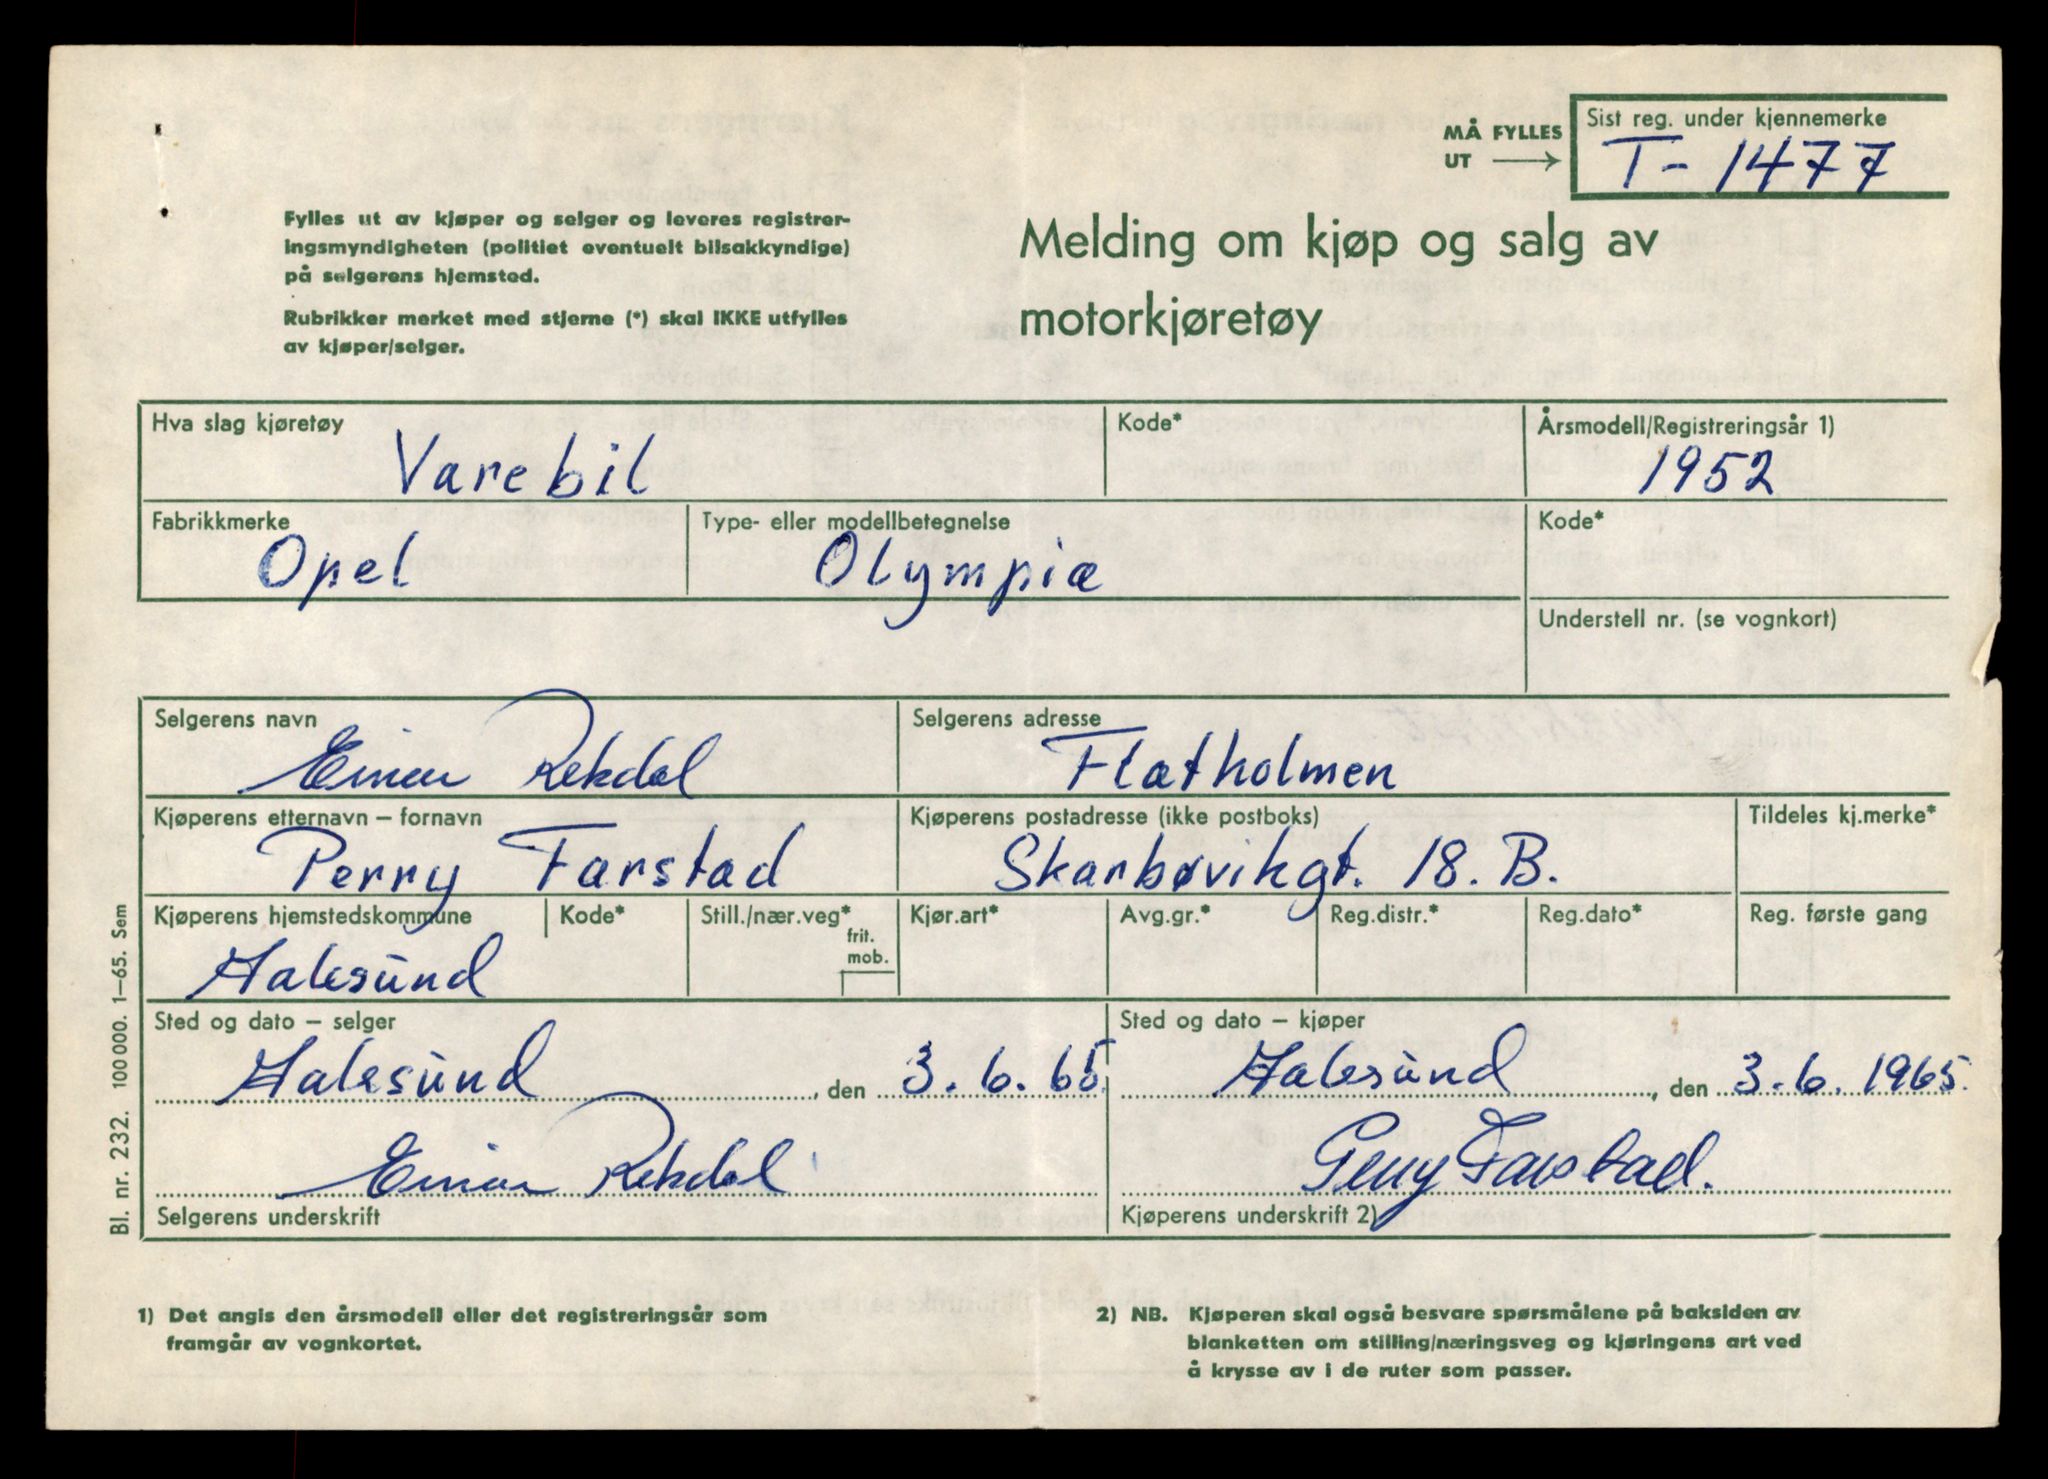 MÅ FYLLES UT →
Sist reg. under kjennemerke
T-1477
Fylles ut av kjøper og selger og leveres registrer-
ingsmyndigheten (politiet eventuelt bilsakkyndige)
på selgerens hjemsted.
Rubrikker merket med stjerne (*) skal IKKE utfylles
av kjøper/selger.
Melding om kjøp og salg av
motorkjøretøy
Hva slag kjøretøy
Varebil
Kode*
Årsmodell/Registreringsår 1)
1952
Fabrikkmerke
Opel
Type- eller modellbetegnelse
Olympia
Kode*
Understell nr. (se vognkort)
Selgerens navn
Einar Rekdal
Selgerens adresse
Flatholmen
Kjøperens etternavn – fornavn
Perry Farstad
Kjøperens postadresse (ikke postboks)
Skarbøvikgt. 18. B.
Tildeles kj.merke*
Kjøperens hjemstedskommune
Aalesund
Kode*
Still./nær.veg*
frit.
mob.
Kjør.art*
Avg.gr.*
Reg.distr.*
Reg.dato*
Reg. første gang
Sted og dato – selger
Aalesund, den 3.6.65
Sted og dato – kjøper
Aalesund, den 3.6.1965.
Einar Rekdal
Selgerens underskrift
Perry Farstad.
Kjøperens underskrift 2)
Bl. nr. 232. 100 000. 1–65. Sem
1) Det angis den årsmodell eller det registreringsår som
framgår av vognkortet.
2) NB. Kjøperen skal også besvare spørsmålene på baksiden av
blanketten om stilling/næringsveg og kjøringens art ved
å krysse av i de ruter som passer.